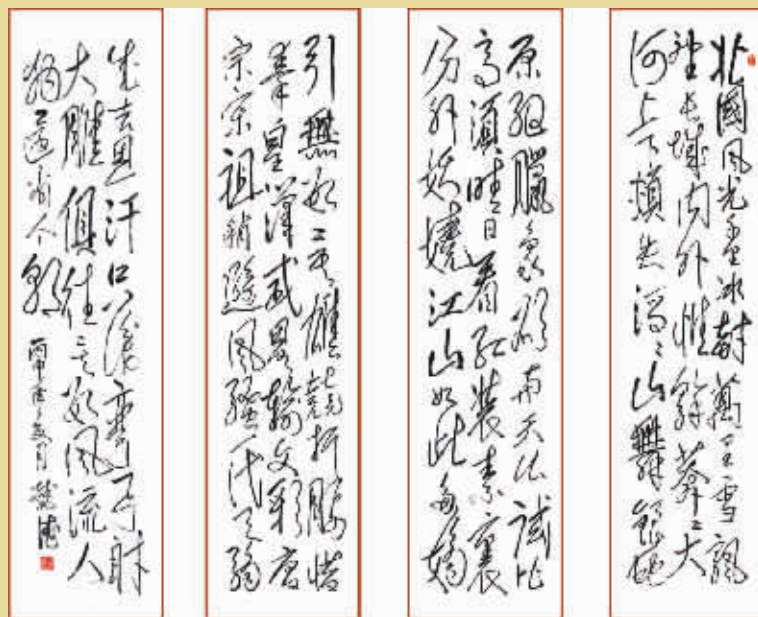 北國風光千里冰封萬里雪飄
望长城内外惟餘莽莽大
河上下頓失滔滔山舞銀蛇
原馳臘象欲与天公試比
高須晴日看红装素裹
分外妖嬈江山如此多嬌
引無数英雄競折腰惜
秦皇漢武略輸文彩唐
宗宋祖稍遜風騷一代天驕
成吉思汗只识彎弓射
大雕俱往矣数風流人
物还看今朝
丙申